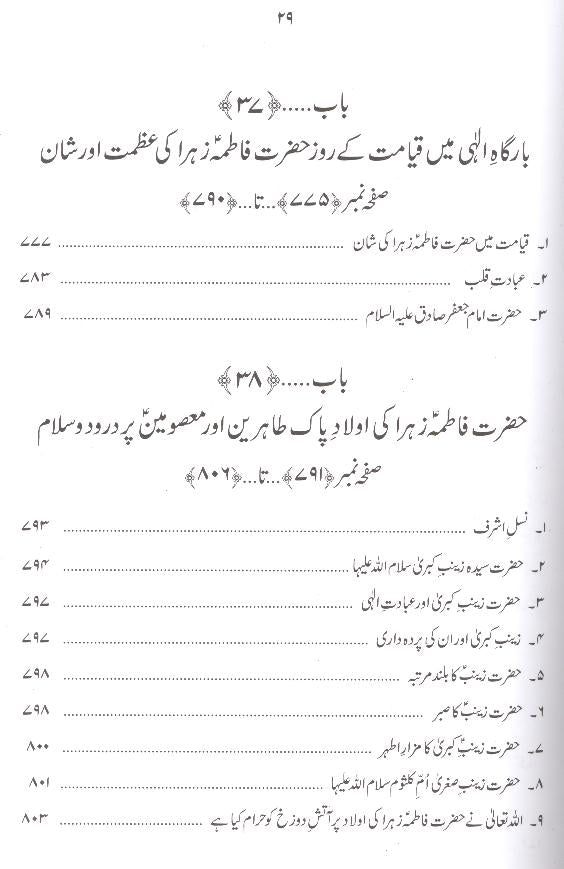 ۲۹
باب.....﴿۳۷﴾
بارگاہِ الٰہی میں قیامت کے روز حضرت فاطمہؑ زہرا کی عظمت اور شان
صفحہ نمبر ﴿۷۷۵﴾...تا...﴿۷۹۰﴾
۱۔ قیامت میں حضرت فاطمہؑ زہرا کی شان ........ ۷۷۷
۲۔ عبادتِ قلب ........ ۷۸۳
۳۔ حضرت امام جعفر صادق علیہ السلام ........ ۷۸۹
باب.....﴿۳۸﴾
حضرت فاطمہؑ زہرا کی اولادِ پاک طاہرین اور معصومینؑ پر درود و سلام
صفحہ نمبر ﴿۷۹۱﴾...تا...﴿۸۰۶﴾
۱۔ نسلِ اشرف ........ ۷۹۳
۲۔ حضرت سیدہ زینبِ کبریٰ سلام اللہ علیہا ........ ۷۹۴
۳۔ حضرت زینبِ کبریٰ اور عبادتِ الٰہی ........ ۷۹۷
۴۔ زینبِ کبریٰ اور ان کی پردہ داری ........ ۷۹۷
۵۔ حضرت زینبؑ کا بلند مرتبہ ........ ۷۹۸
۶۔ حضرت زینبؑ کا صبر ........ ۷۹۸
۷۔ حضرت زینبؑ کبریٰ کا مزارِ اطہر ........ ۸۰۰
۸۔ حضرت زینبِ صغریٰ اُمِّ کلثوم سلام اللہ علیہا ........ ۸۰۱
۹۔ اللہ تعالیٰ نے حضرت فاطمہؑ زہرا کی اولاد پر آتشِ دوزخ کو حرام کیا ہے ........ ۸۰۳